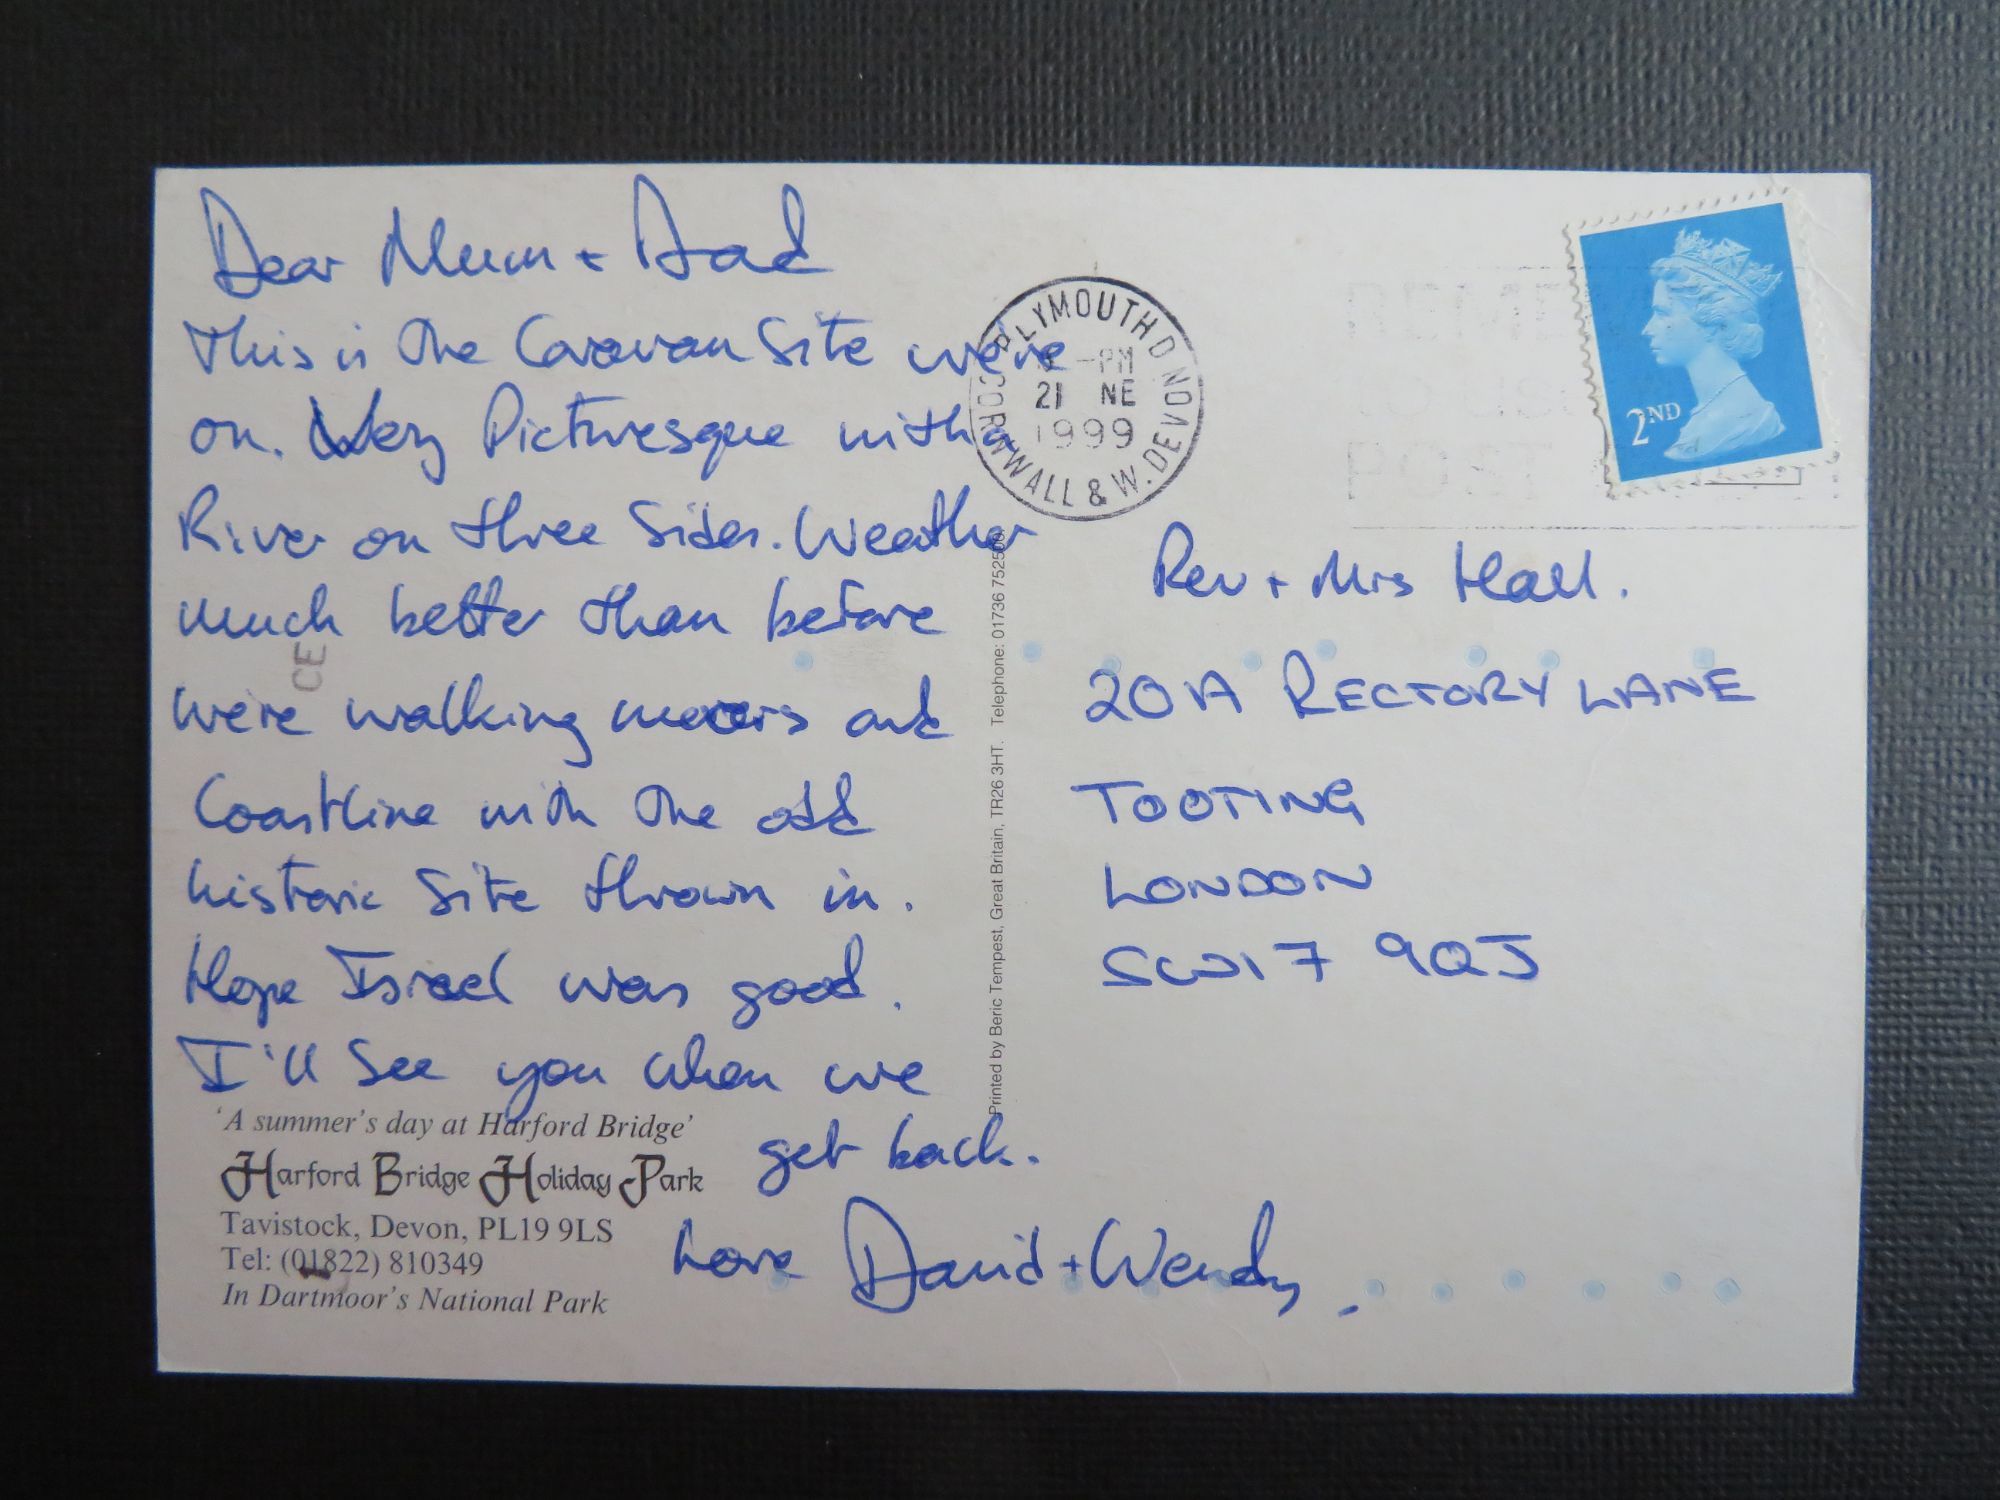 Dear Mum + Dad
This is the Caravan Site we're
on. Very Picturesque with a
River on three Sides. Weather
much better than before
we're walking moors and
Coastline with the odd
historic Site thrown in.
Hope Israel was good.
I'll See you when we
get back.
Love David + Wendy.
'A summer's day at Harford Bridge'
Harford Bridge Holiday Park
Tavistock, Devon, PL19 9LS
Tel: (01822) 810349
In Dartmoor's National Park
Printed by Beric Tempest, Great Britain, TR26 3HT. Telephone: 01736 752500
PLYMOUTH D
-PM
21 NE
1999
CORNWALL & W. DEVON
POST
2ND
Rev + Mrs Hall.
20A RECTORY LANE
TOOTING
LONDON
SW17 9QJ
CE